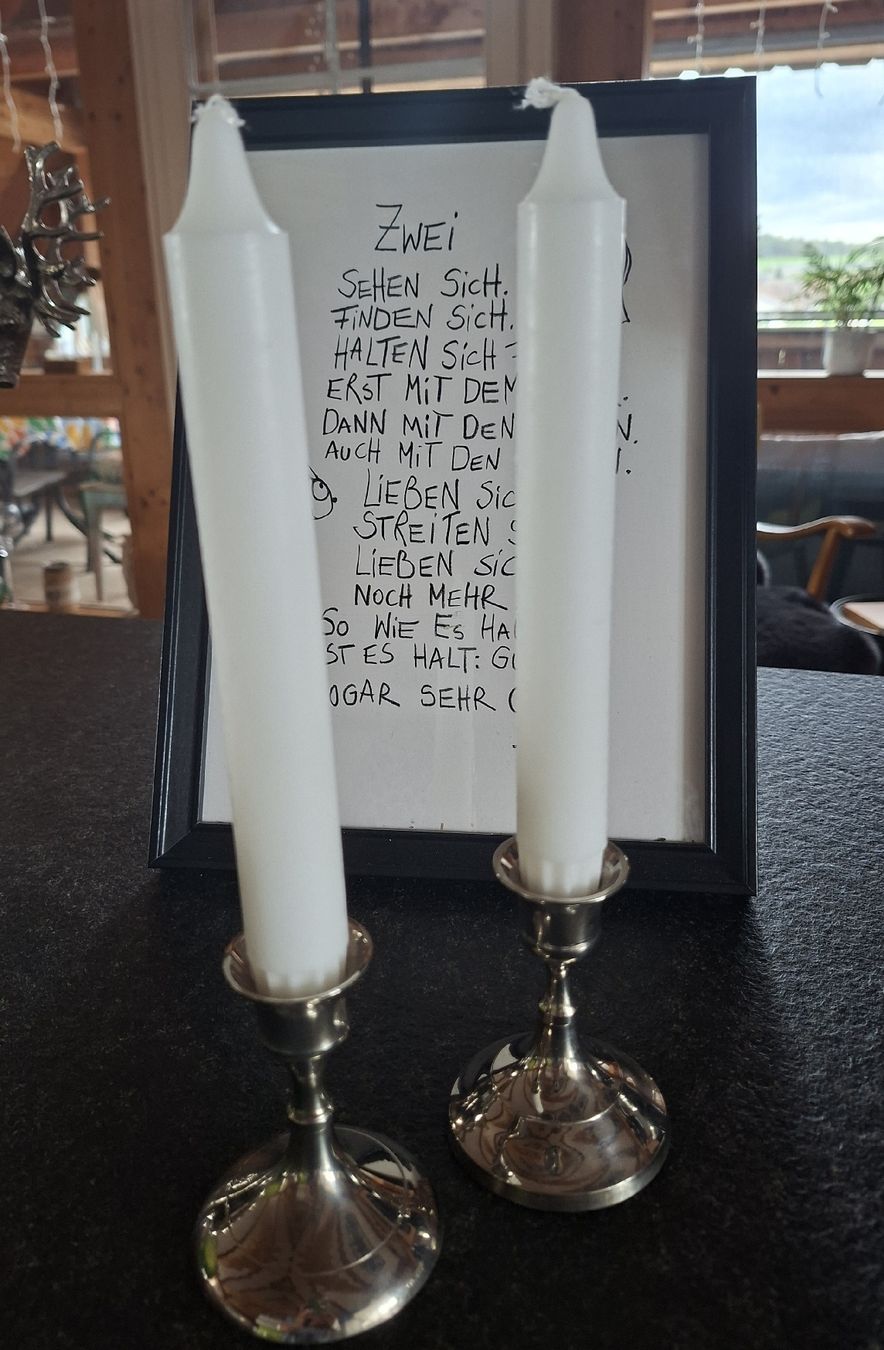 ZWEi
SEHEN SiCH.
FiNDEN SiCH.
HALTEN SiCH
ERST MiT DEM
DANN MiT DEN
AUCH MiT DEN
LiEBEN
STREiTEN
LiEBEN
NOCH MEHR
So WiE Es
ES HALT:
SEHR